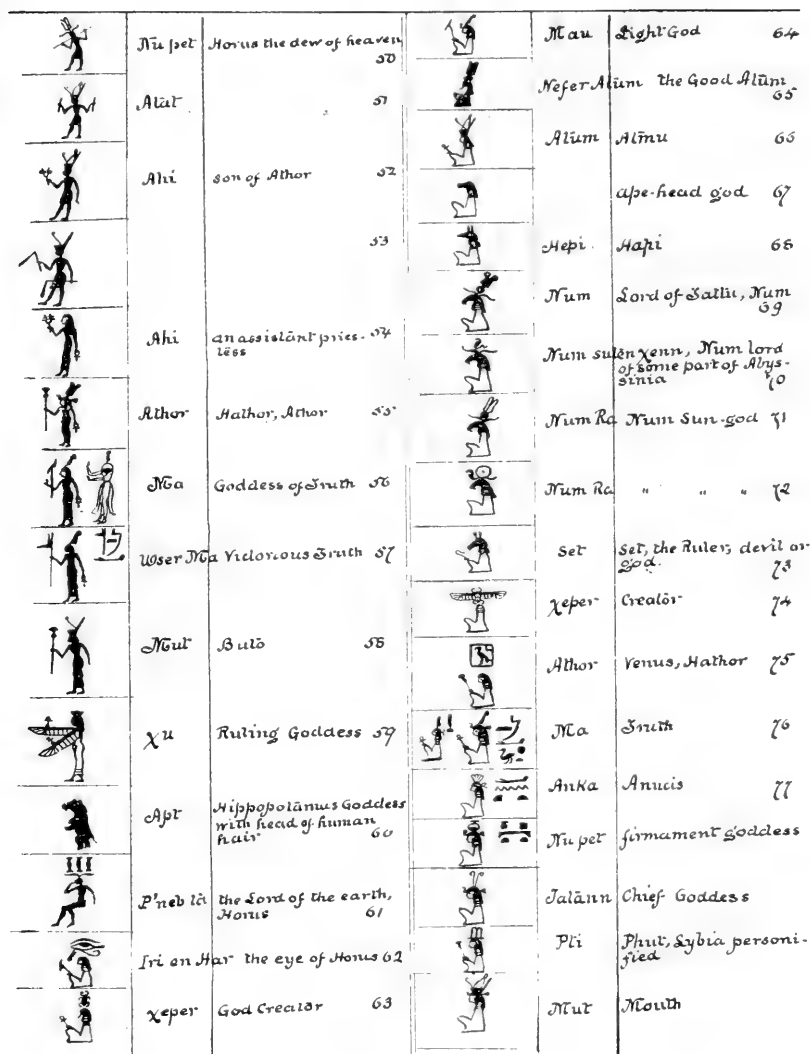 Nu pet Horus the dew of heaven
50
Atat 51
Ahi son of Athor 52
53
Ahi an assistant pries-
tess 54
Athor Hathor, Athor 55
Ma Goddess of Truth 56
User Ma Victorious Truth 57
Mut Buto 58
χu Ruling Goddess 59
Apt Hippopotāmus Goddess
with head of human
hair 60
P'neb ta the Lord of the earth,
Horus 61
Iri en Har the eye of Horus 62
χeper God Creatār 63
Mau Light God 64
Nefer Atūm the Good Atūm
65
Atūm Atmu 66
ape-head god 67
Hepi Hapi 68
Num Lord of Tattu, Num
69
Num sutēn χenn, Num lord
of some part of Abys-
sinia 70
Num Ra Num Sun-god 71
Num Ra " " " 72
Set Set, the Ruler, devil or
god. 73
χeper Creatōr 74
Athor Venus, Hathor 75
Ma Truth 76
Anka Anucis 77
Nu pet firmament goddess
Tatānn Chief Goddess
Pti Phut, Lybia personi-
fied
Mut Mouth